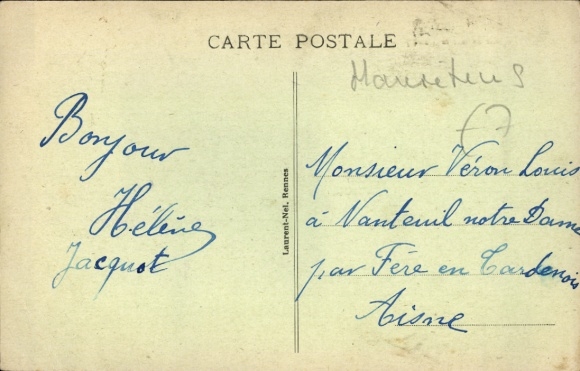 CARTE POSTALE
Bonjour
Hélène
Jacquot
Laurent-Nel, Rennes
Monsieur Véron Louis
à Nanteuil notre Dame
par Fére en Tardenois
Aisne